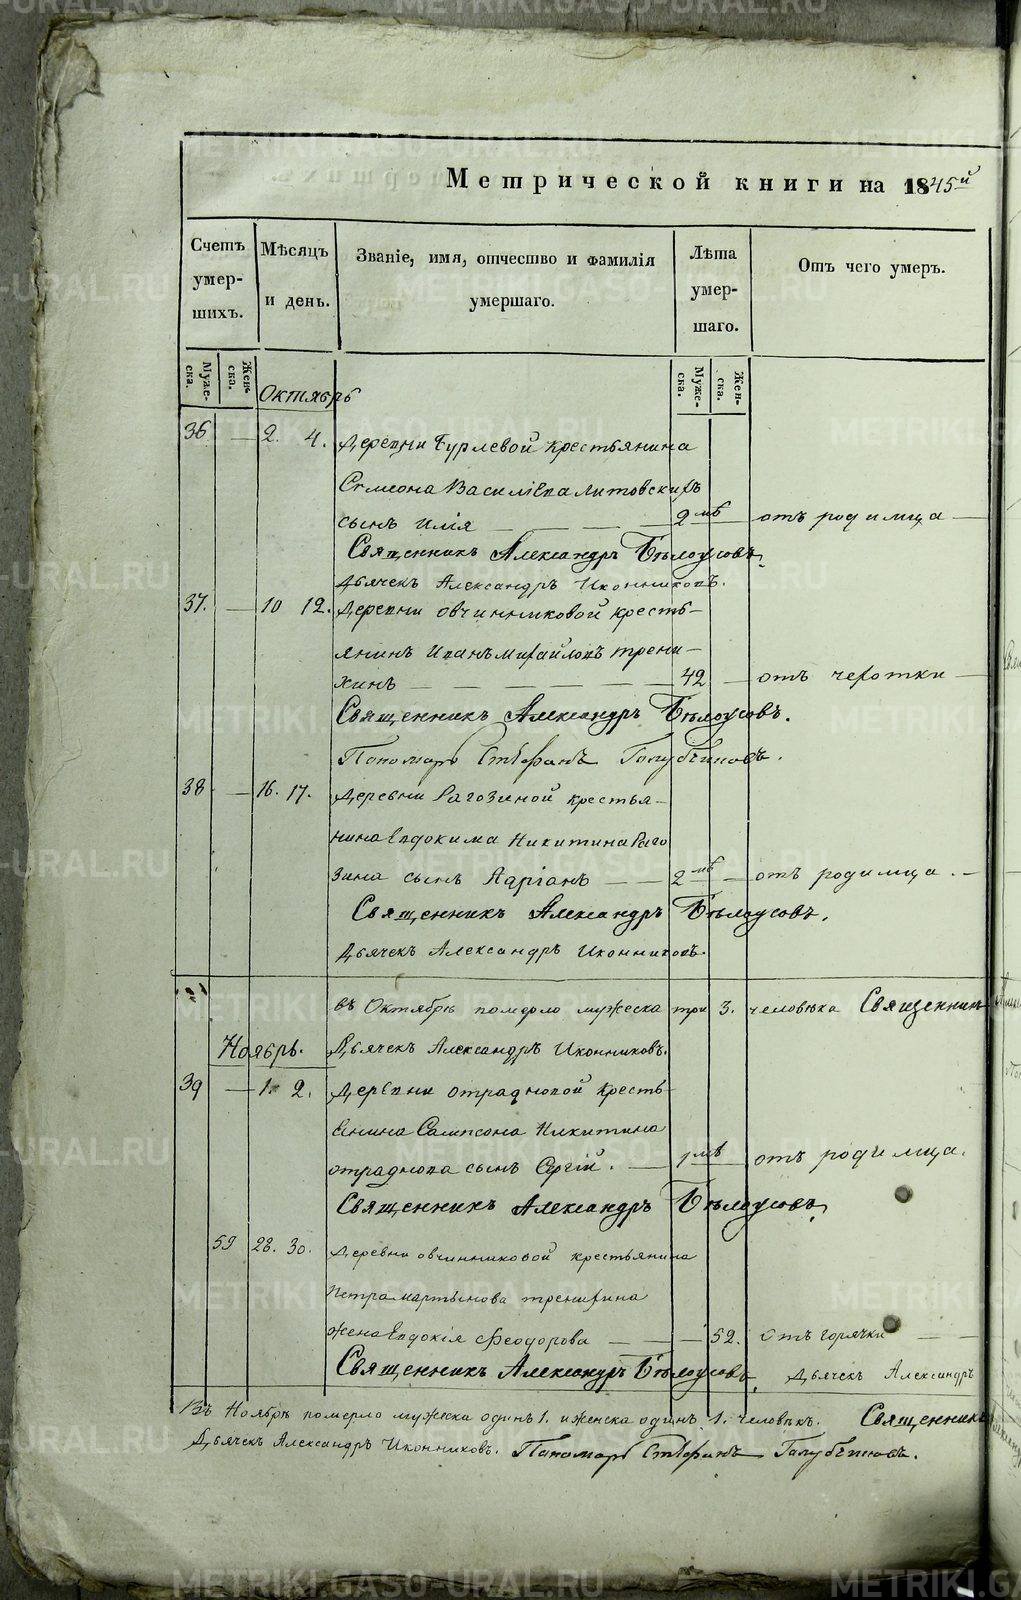 Метрической книги на 1845й
Счетъ умершихъ.
Мѣсяцъ и день.
Званіе, имя, отчество и фамилія умершаго.
Лѣта умершаго.
Отъ чего умеръ.
Мужеска.
Женска.
Мужеска.
Женска.
Октябрь
36 — 2. 4. Деревни Бурлевой крестьянина
Симеона Василіева Литовскихъ
сынъ Илія — — — 2 мѣ — отъ родимца —
Священникъ Александръ Бѣлоусовъ.
Дьячекъ Александръ Иконниковъ.
37. — 10 12. Деревни Овчинниковой кресть-
янинъ Иванъ Михайловъ Трени-
хинъ — — — — 42 — отъ чехотки —
Священникъ Александръ Бѣлоусовъ.
Пономарь Стефанъ Голубчиковъ.
38 — 16. 17. Деревни Рагозиной крестья-
нина Евдокима Никитина Раго
зина сынъ Адріанъ — — 2 мѣ — отъ родимца. —
Священникъ Александръ Бѣлоусовъ.
Дьячекъ Александръ Иконниковъ
въ Октябрѣ померло мужеска три 3. человѣка Священникъ
Дьячекъ Александръ Иконниковъ.
Ноябрь.
39 — 1. 2. Деревни Отрадновой кресть
янина Сампсона Никитина
Отраднова сынъ Сергій. — 1 мѣ — отъ родимца.
Священникъ Александръ Бѣлоусовъ,
59 28. 30. Деревни Овчинниковой крестьянина
Петра Мартынова Тренихина
жена Евдокія Ѳеодорова — — — 52. отъ горячки — —
Священникъ Александръ Бѣлоусовъ, Дьячекъ Александръ
Въ Ноябрѣ померло мужеска одинъ 1. и женска одинъ 1. человѣкъ. Священникъ
Дьячекъ Александръ Иконниковъ. Пономарь Стефанъ Голубчиковъ.
METRIKI.GASO-URAL.RU